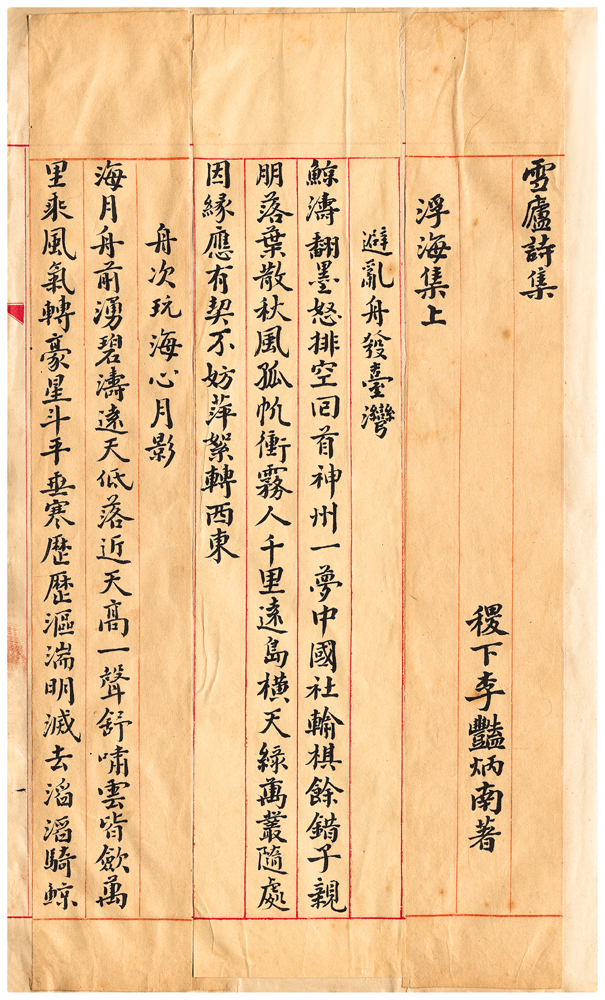 雪廬詩集
稷下李豔炳南著
浮海集上
避亂舟發臺灣
鯨濤翻墨怒排空囘首神州一夢中國社輸棋餘錯子親
朋落葉散秋風孤帆衝霧人千里遠島橫天綠萬叢隨處
因緣應有契不妨萍絮轉西東
舟次玩海心月影
海月舟前湧碧濤遠天低落近天高一聲舒嘯雲皆斂萬
里乘風氣轉豪星斗平垂寒歷歷漚湍明滅去滔滔騎鯨